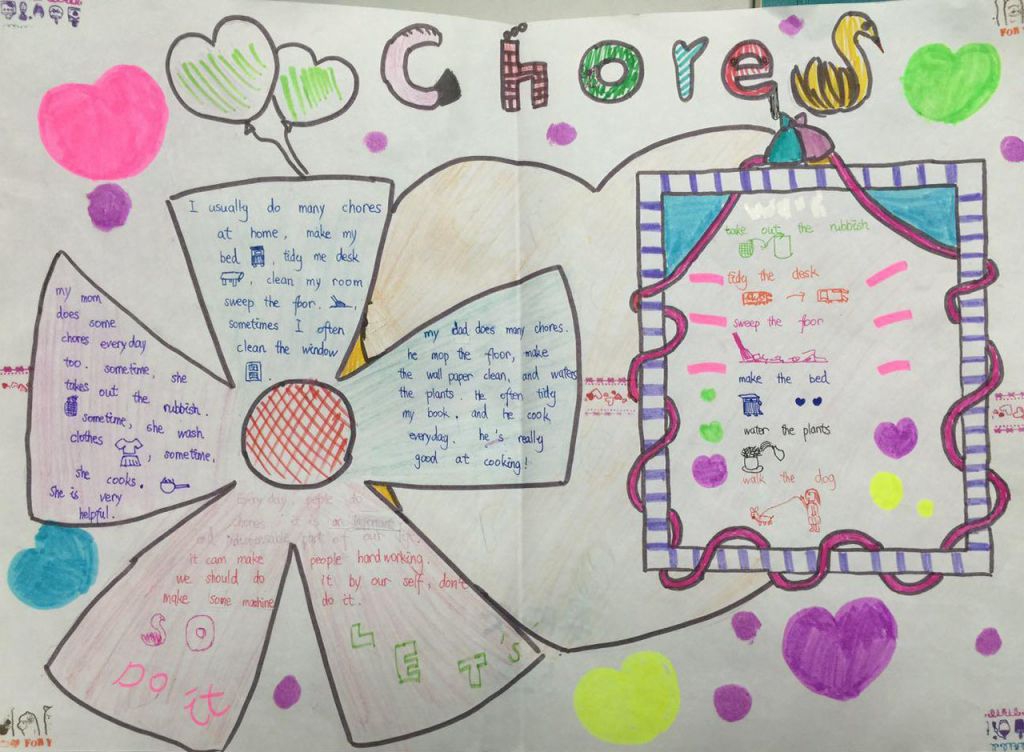 Chores
I usually do many chores
at home, make my
bed, tidy me desk
, clean my room
sweep the foor.
sometimes I often
clean the window
.
my mom
does some
chores everyday
too. sometime, she
takes out the rubbish.
sometime, she wash
clothes, sometime,
she cooks.
She is very
helpful.
my dad does many chores.
he mop the floor, make
the wall paper clean, and waters
the plants. He often tidy
my book. and he cook
everyday. he's really
good at cooking!
Every day, people do
chores it is an important
and indispensable part of our life.
it can make people hard working.
we should do it by our self, don't
make some machine do it.
SO LET'S
DO it
take out the rubbish
tidy the desk
sweep the foor
make the bed
water the plants
walk the dog